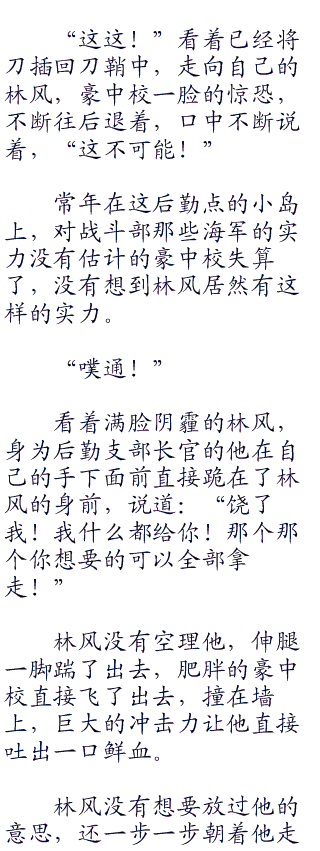 “这这！”看着已经将
刀插回刀鞘中，走向自己的
林风，豪中校一脸的惊恐，
不断往后退着，口中不断说
着，“这不可能！”
常年在这后勤点的小岛
上，对战斗部那些海军的实
力没有估计的豪中校失算
了，没有想到林风居然有这
样的实力。
“噗通！”
看着满脸阴霾的林风，
身为后勤支部长官的他在自
己的手下面前直接跪在了林
风的身前，说道：“饶了
我！我什么都给你！那个那
个你想要的可以全部拿
走！”
林风没有空理他，伸腿
一脚踹了出去，肥胖的豪中
校直接飞了出去，撞在墙
上，巨大的冲击力让他直接
吐出一口鲜血。
林风没有想要放过他的
意思，还一步一步朝着他走